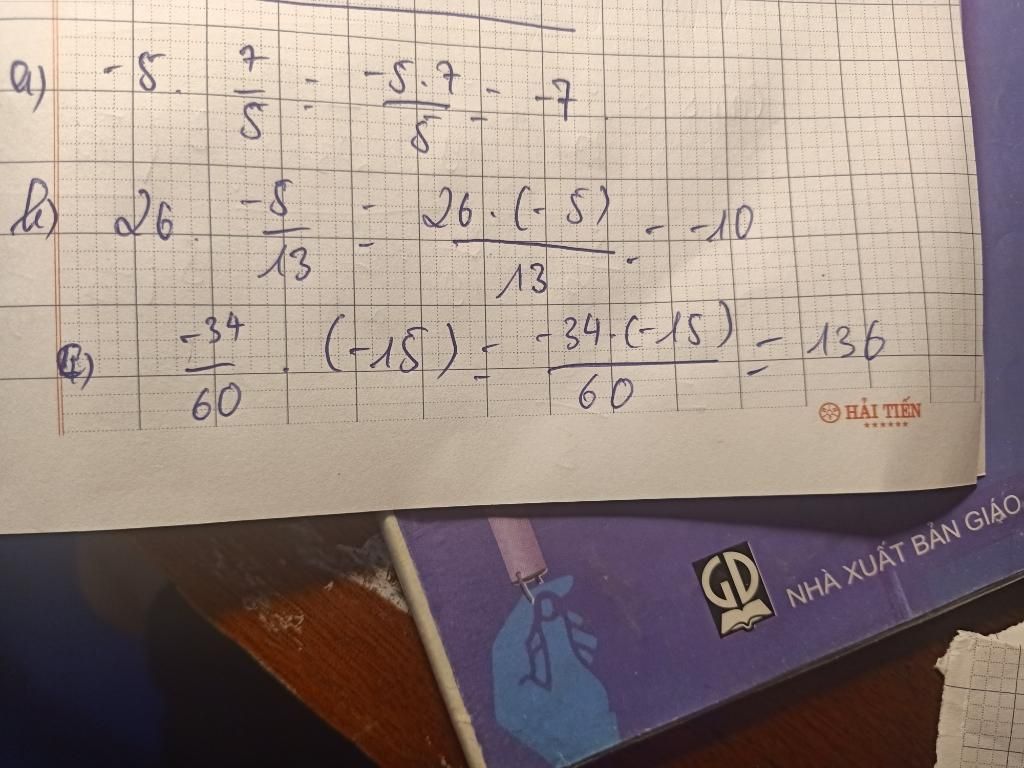 a) -5 . 7/5 = -5.7/5 = -7
b) 26 . -5/13 = 26.(-5)/13 = -10
c) -34/60 . (-15) = -34.(-15)/60 = 136
HẢI TIẾN
GD NHÀ XUẤT BẢN GIÁO